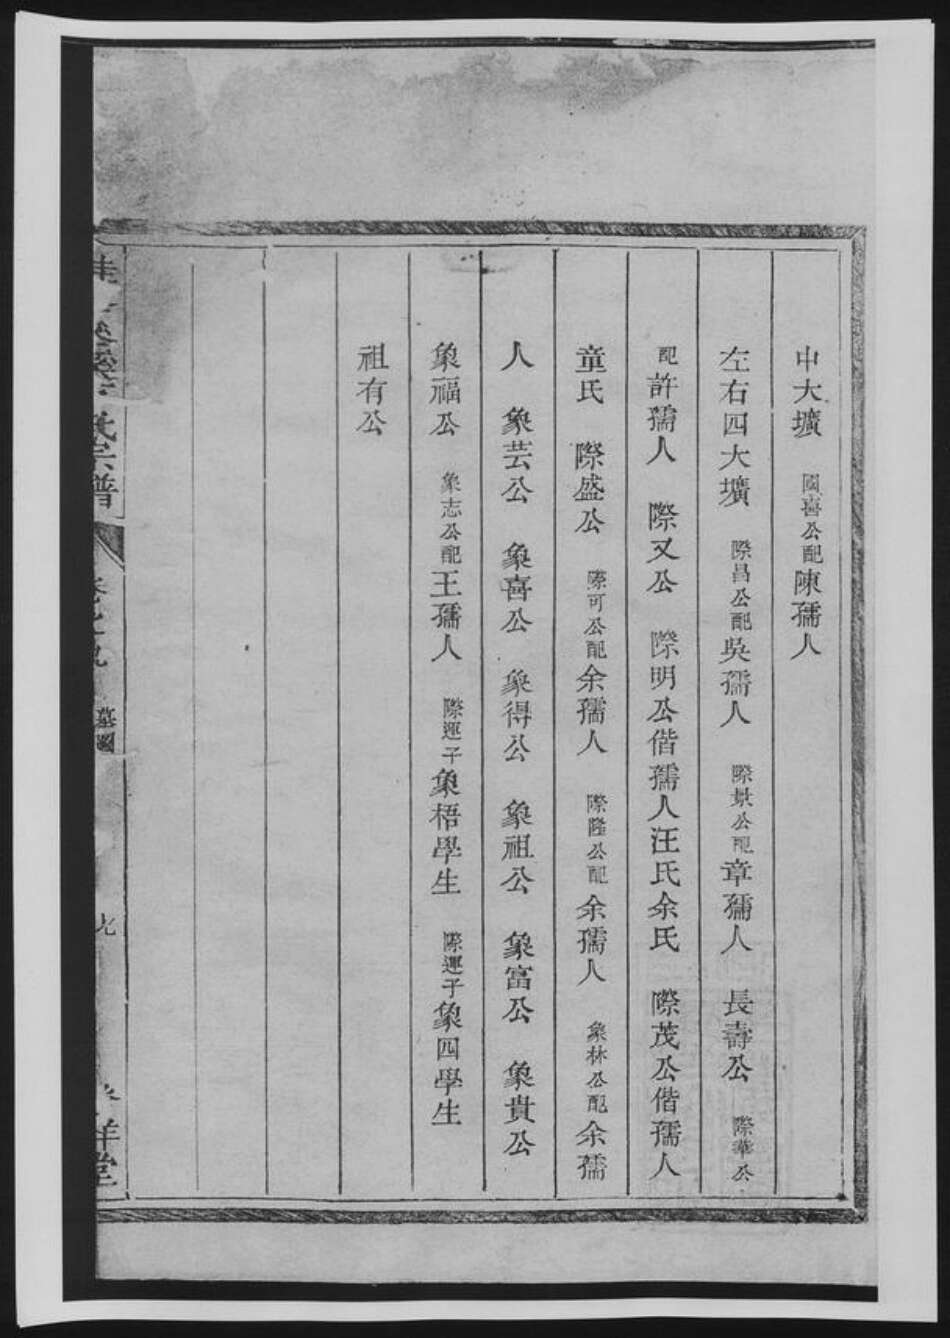 中大壙 國喜公配陳孺人
左右四大壙 際昌公配吳孺人 際景公配章孺人 長壽公 際華公
配許孺人 際又公 際明公偕孺人汪氏余氏 際茂公偕孺人
童氏 際盛公 際可公配余孺人 際隆公配余孺人 象林公配余孺
人 象芸公 象喜公 象得公 象祖公 象富公 象貴公
象福公 象志公配王孺人 際運子象梧學生 際運子象四學生
祖有公
氏宗譜 墓圖 九 祥堂